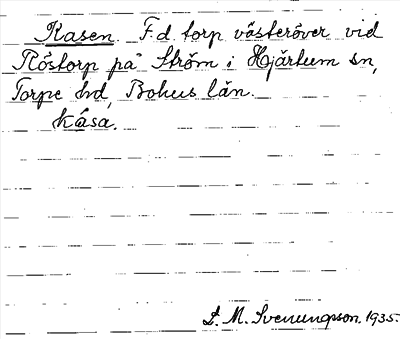 Kasen. F.d. torp västeröver vid
Röstorp på Ström i Hjärtum sn,
Torpe hd, Bohus län.
kása.
S. M. Svenungsson. 1935.